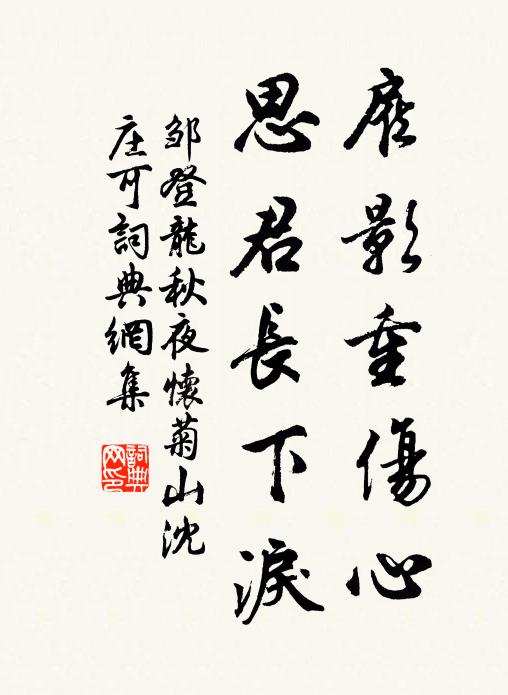 雁影重傷心
思君長下淚
鄒登龍秋夜懷菊山沈
庄可詞典網集
詞典
网印